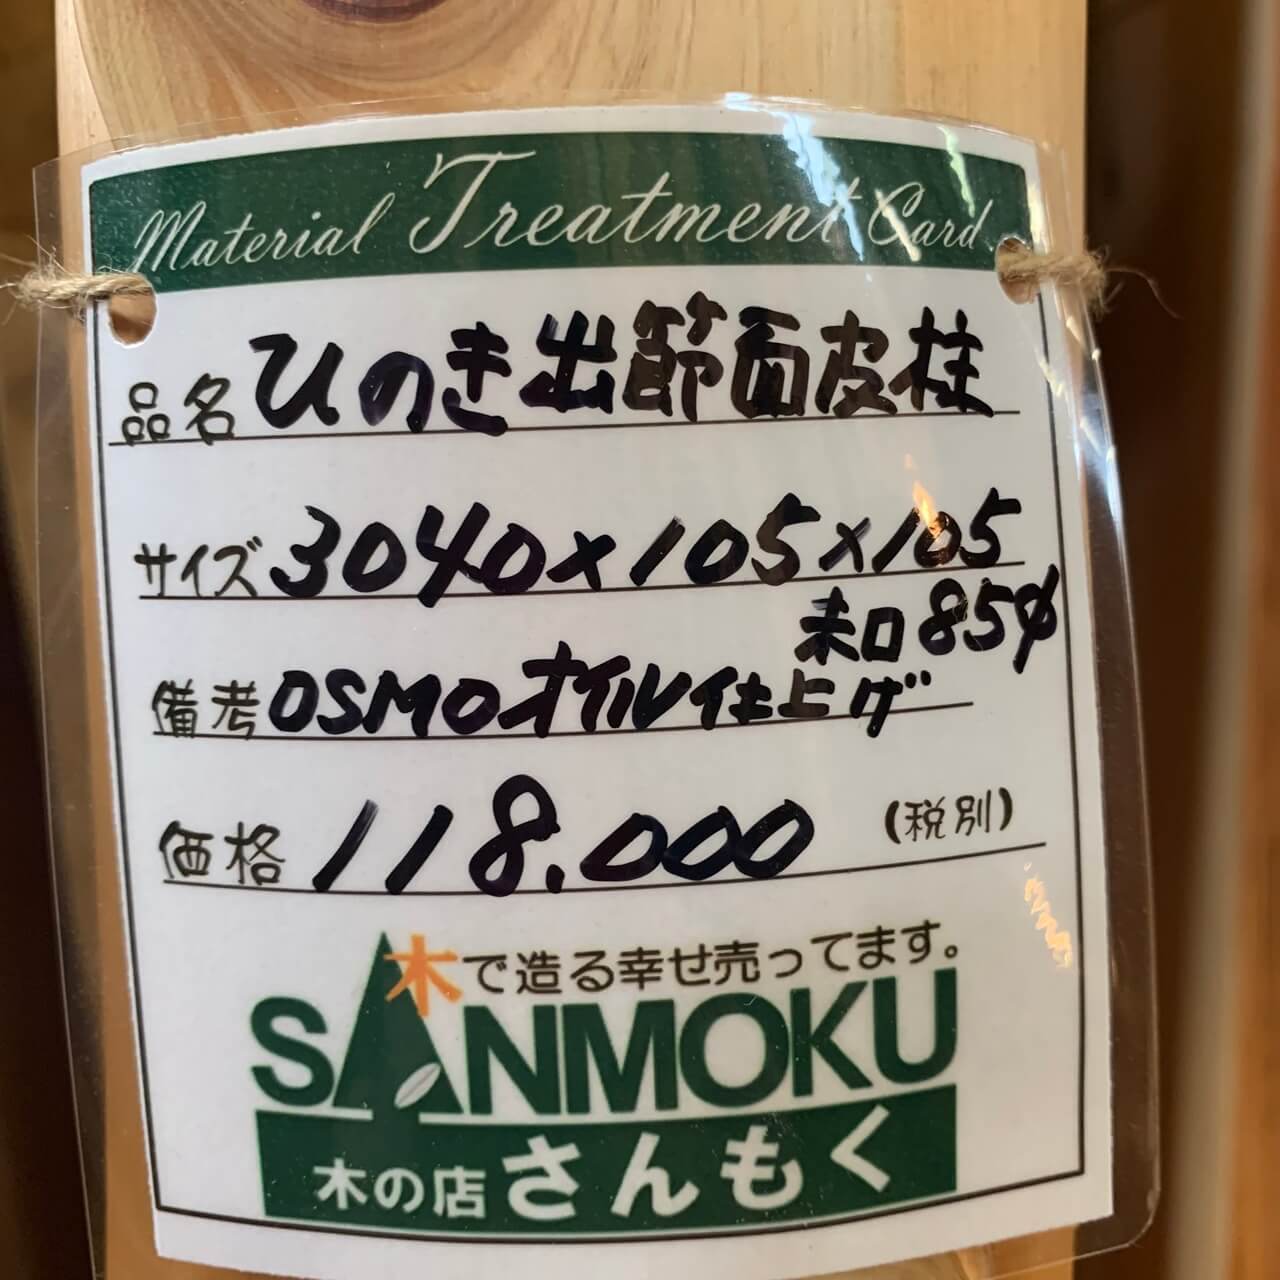 Material Treatment Card
品名 ひのき出節面皮柱
サイズ 3040×105×105
末口85φ
備考 OSMOオイル仕上げ
価格 118.000 (税別)
木で造る幸せ売ってます。
SANMOKU
木の店 さんもく